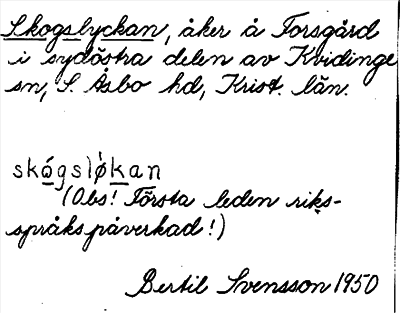 Skogslyckan, åker å Forsgård
i sydöstra delen av Kvidinge
sn, S. Åsbo hd, Krist. län.
skógsló̀kan
(Obs! Första leden riks-
språkspåverkad!)
Bertil Svensson 1950